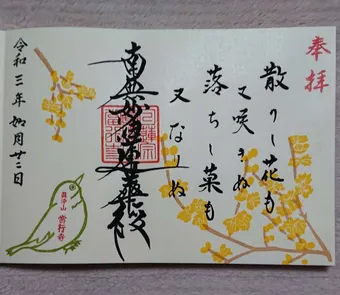 奉拝
散りし花も
又咲きぬ
落ちし菓も
又なりぬ
南無妙法蓮華経
令和三年如月廿二日
眞浄山
常行寺